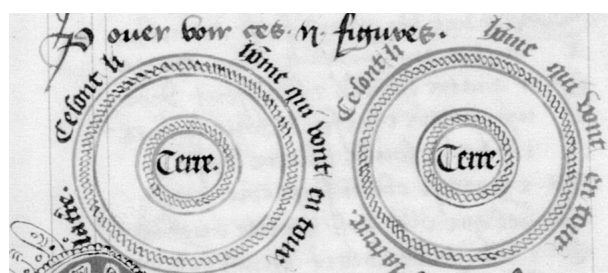 Pouer voir ces .ii. figures.
Ce sont li hōme qui vont en tour
la terre.
Terre.
Ce sont li hōme qui vont en tour
la terre.
Terre.